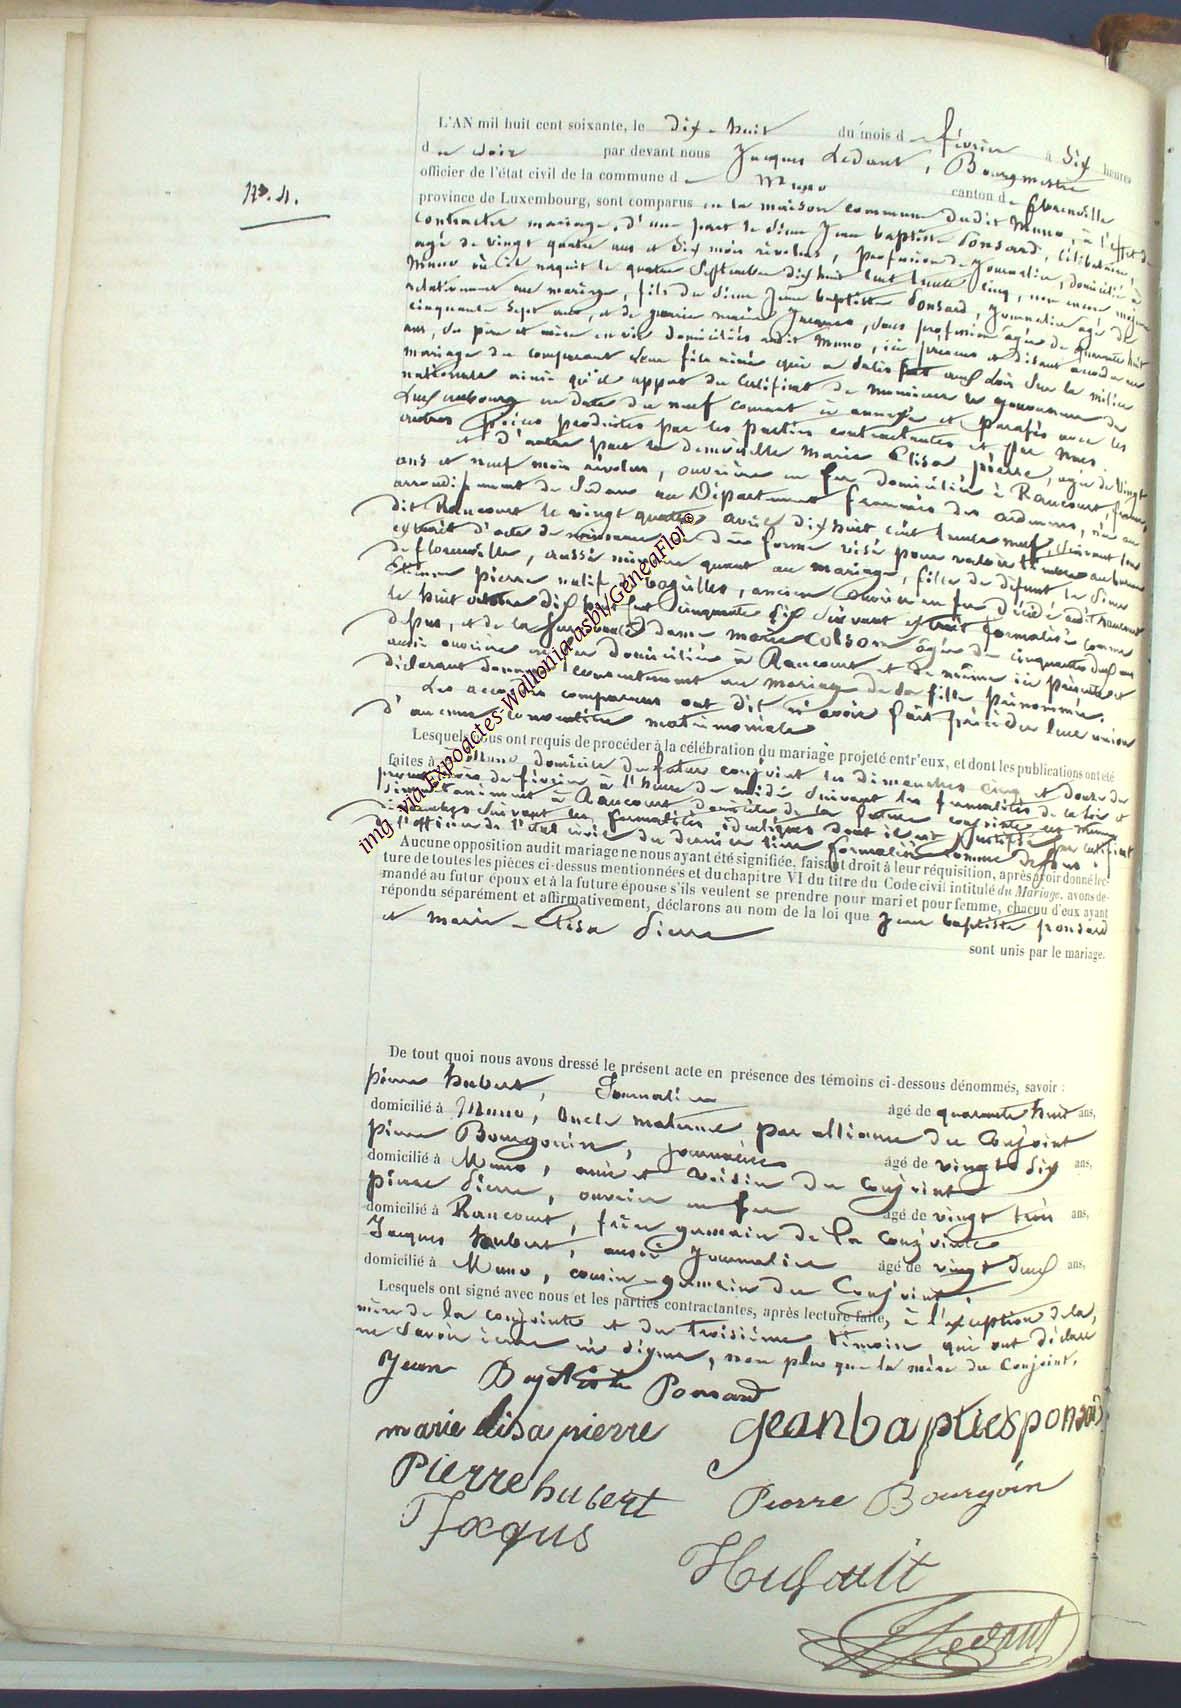 N°. 4.
L'AN mil huit cent soixante, le dix-huit du mois de février à dix heures
du soir par devant nous Jacques Ledant, Bourgmestre
officier de l'état civil de la commune de Muno canton de Florenville
province de Luxembourg, sont comparus en la maison commune dudit Muno, à l'effet de
contracter mariage, d'une part le sieur Jean baptiste Ponsard, célibataire,
agé de vingt quatre ans et dix mois révolus, profession de journalier, domicilié à
Muno où il naquit le quatre Septembre dix huit cent trente cinq, non encore majeur
relativement au mariage, fils du sieur Jean baptiste Ponsard, journalier agé de
cinquante Sept ans, et de marie, sans profession agée de quarante huit
ans, ses père et mère en vie domiciliés audit Muno, ici présens et disant accéder au
mariage du comparant leur fils ainé qui a satisfait aux lois sur la milice
nationale ainsi qu'il appert du certificat de monsieur le gouverneur du
Luxembourg en date du neuf courant ci annexé et parafé avec les
autres pièces produites par les parties contractantes et par nous.
et d'autre part la demoiselle Marie Elisa pierre, agée de vingt
ans et neuf mois révolus, ouvrière en fer domiciliée à Raucourt, france,
arrondissement de Sedan au Département français des ardennes, née au
dit Raucourt le vingt quatre avril dix huit cent trente neuf, suivant son
extrait d'acte de naissance en due forme visé pour valoir timbre au bureau
de florenville, aussi mineure quant au mariage, fille de défunt le sieur
pierre natif de bazeilles, ancien ouvrier en fer décédé audit Raucourt
le huit octobre dix huit cent cinquante dix suivant extrait formalisé comme
dessus, et de la survivante dame marie Colson agée de cinquante deux ans
aussi ouvrière en fer domiciliée à Raucourt et de même ici présente et
déclarant donner consentement au mariage de sa fille prénommée.
Les accordés comparans ont dit n'avoir fait précéder leur union
d'aucune convention matrimoniale
Lesquels nous ont requis de procéder à la célébration du mariage projeté entr'eux, et dont les publications ont été
faites à Muno domicile du futur conjoint les dimanches cinq et douze du
présent mois de février à l'heure de midi suivant les formalités de la loi et
simultanément à Raucourt domicile de la future conjointe les mêmes
dimanches suivant les formalités identiques dont il est justifié par certificat
de l'officier de l'état civil du dernier lieu formalisé comme dessus.
Aucune opposition audit mariage ne nous ayant été signifiée, faisant droit à leur réquisition, après avoir donné lec-
ture de toutes les pièces ci-dessus mentionnées et du chapitre VI du titre du Code civil intitulé du Mariage, avons de-
mandé au futur époux et à la future épouse s'ils veulent se prendre pour mari et pour femme, chacun d'eux ayant
répondu séparément et affirmativement, déclarons au nom de la loi que Jean baptiste ponsard
et marie-Elisa Pierre
sont unis par le mariage.
De tout quoi nous avons dressé le présent acte en présence des témoins ci-dessous dénommés, savoir :
pierre hubert, Journalier agé de quarante huit ans,
domicilié à Muno, Oncle maternel par alliance du Conjoint
pierre Bourgoin, journalier agé de vingt dix ans,
domicilié à Muno, ami et voisin du conjoint
pierre Pierre, ouvrier en fer agé de vingt trois ans,
domicilié à Raucourt, frère germain de la conjointe
Jacques hubert, aussi journalier agé de vingt deux ans,
domicilié à Muno, cousin-germain du Conjoint.
Lesquels ont signé avec nous et les parties contractantes, après lecture faite, à l'exception de la
mère de la conjointe et du troisième témoin qui ont déclaré
ne savoir écrire ni signer, non plus que la mère du Conjoint.
Jean Baptiste Ponsard
marie elisa pierre jean baptiesponsard
Pierre hubert Pierre Bourgoin
Jaqus
JLedant
img via Expoactes-Wallonia-asbl/GeneaFlor®